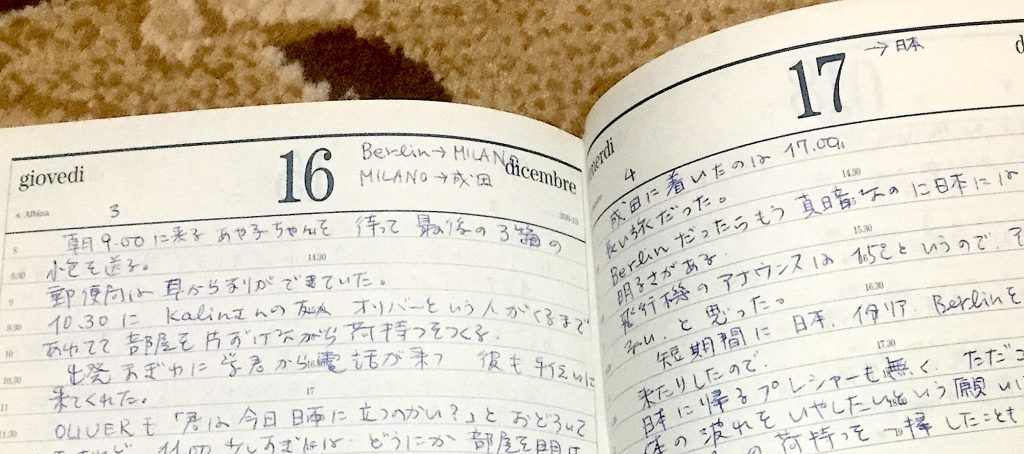 giovedì
16
Berlin→MILANO
MILANO→成田
dicembre
s. Albina
3
350-15
8
朝9.00に来る あや子ちゃんを 待って 最後の3箱の
8.30
小包を送る。
14.30
9
郵便局は 耳からすりができていた。
9.30
10.30に Kalinさんの友人 オリバーという人がくるまで
10
あわてて 部屋を片ずけながら 荷持つをつくる。
10.30
出発まぎわに 学君から電話が来て 彼も手伝いに
11
来てくれた。
17
11.30
OLIVERも「君は今日日本に立つのかい?」と おどろいて
どうにか 部屋を
→日本
17
venerdì
4
成田に着いたのは 17.00。
長い旅だった。
14.30
Berlinだったらもう 真暗なのに日本には
明るさがある。
15.30
飛行機のアナウンスは 15℃というので、
と思った。
16.30
短期間に 日本、イタリア、Berlinを
来たりしたので、
17.30
日本に帰るプレシャーも無く、ただ
体の波れを いやしたいという願い
の荷持つを 一掃したことも